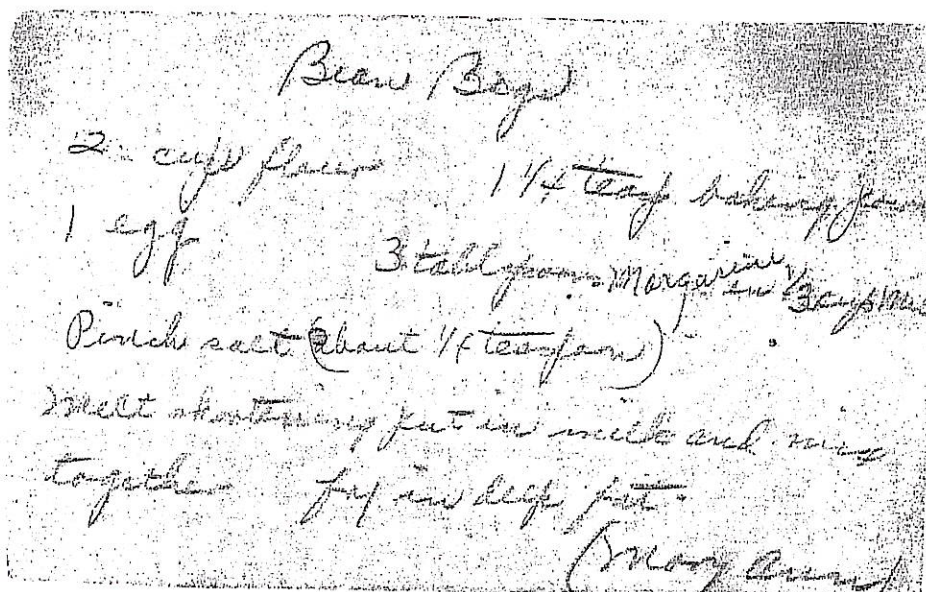 Bean Bags
2 cups flour 1 1/4 teasp baking pow
1 egg 3 tablespoons Margarine in 1/3 cup Mi
Pinch salt (about 1/4 teaspoon)
Melt shortening put in milk and mix
together fry in deep fat.
(Mary Ann)